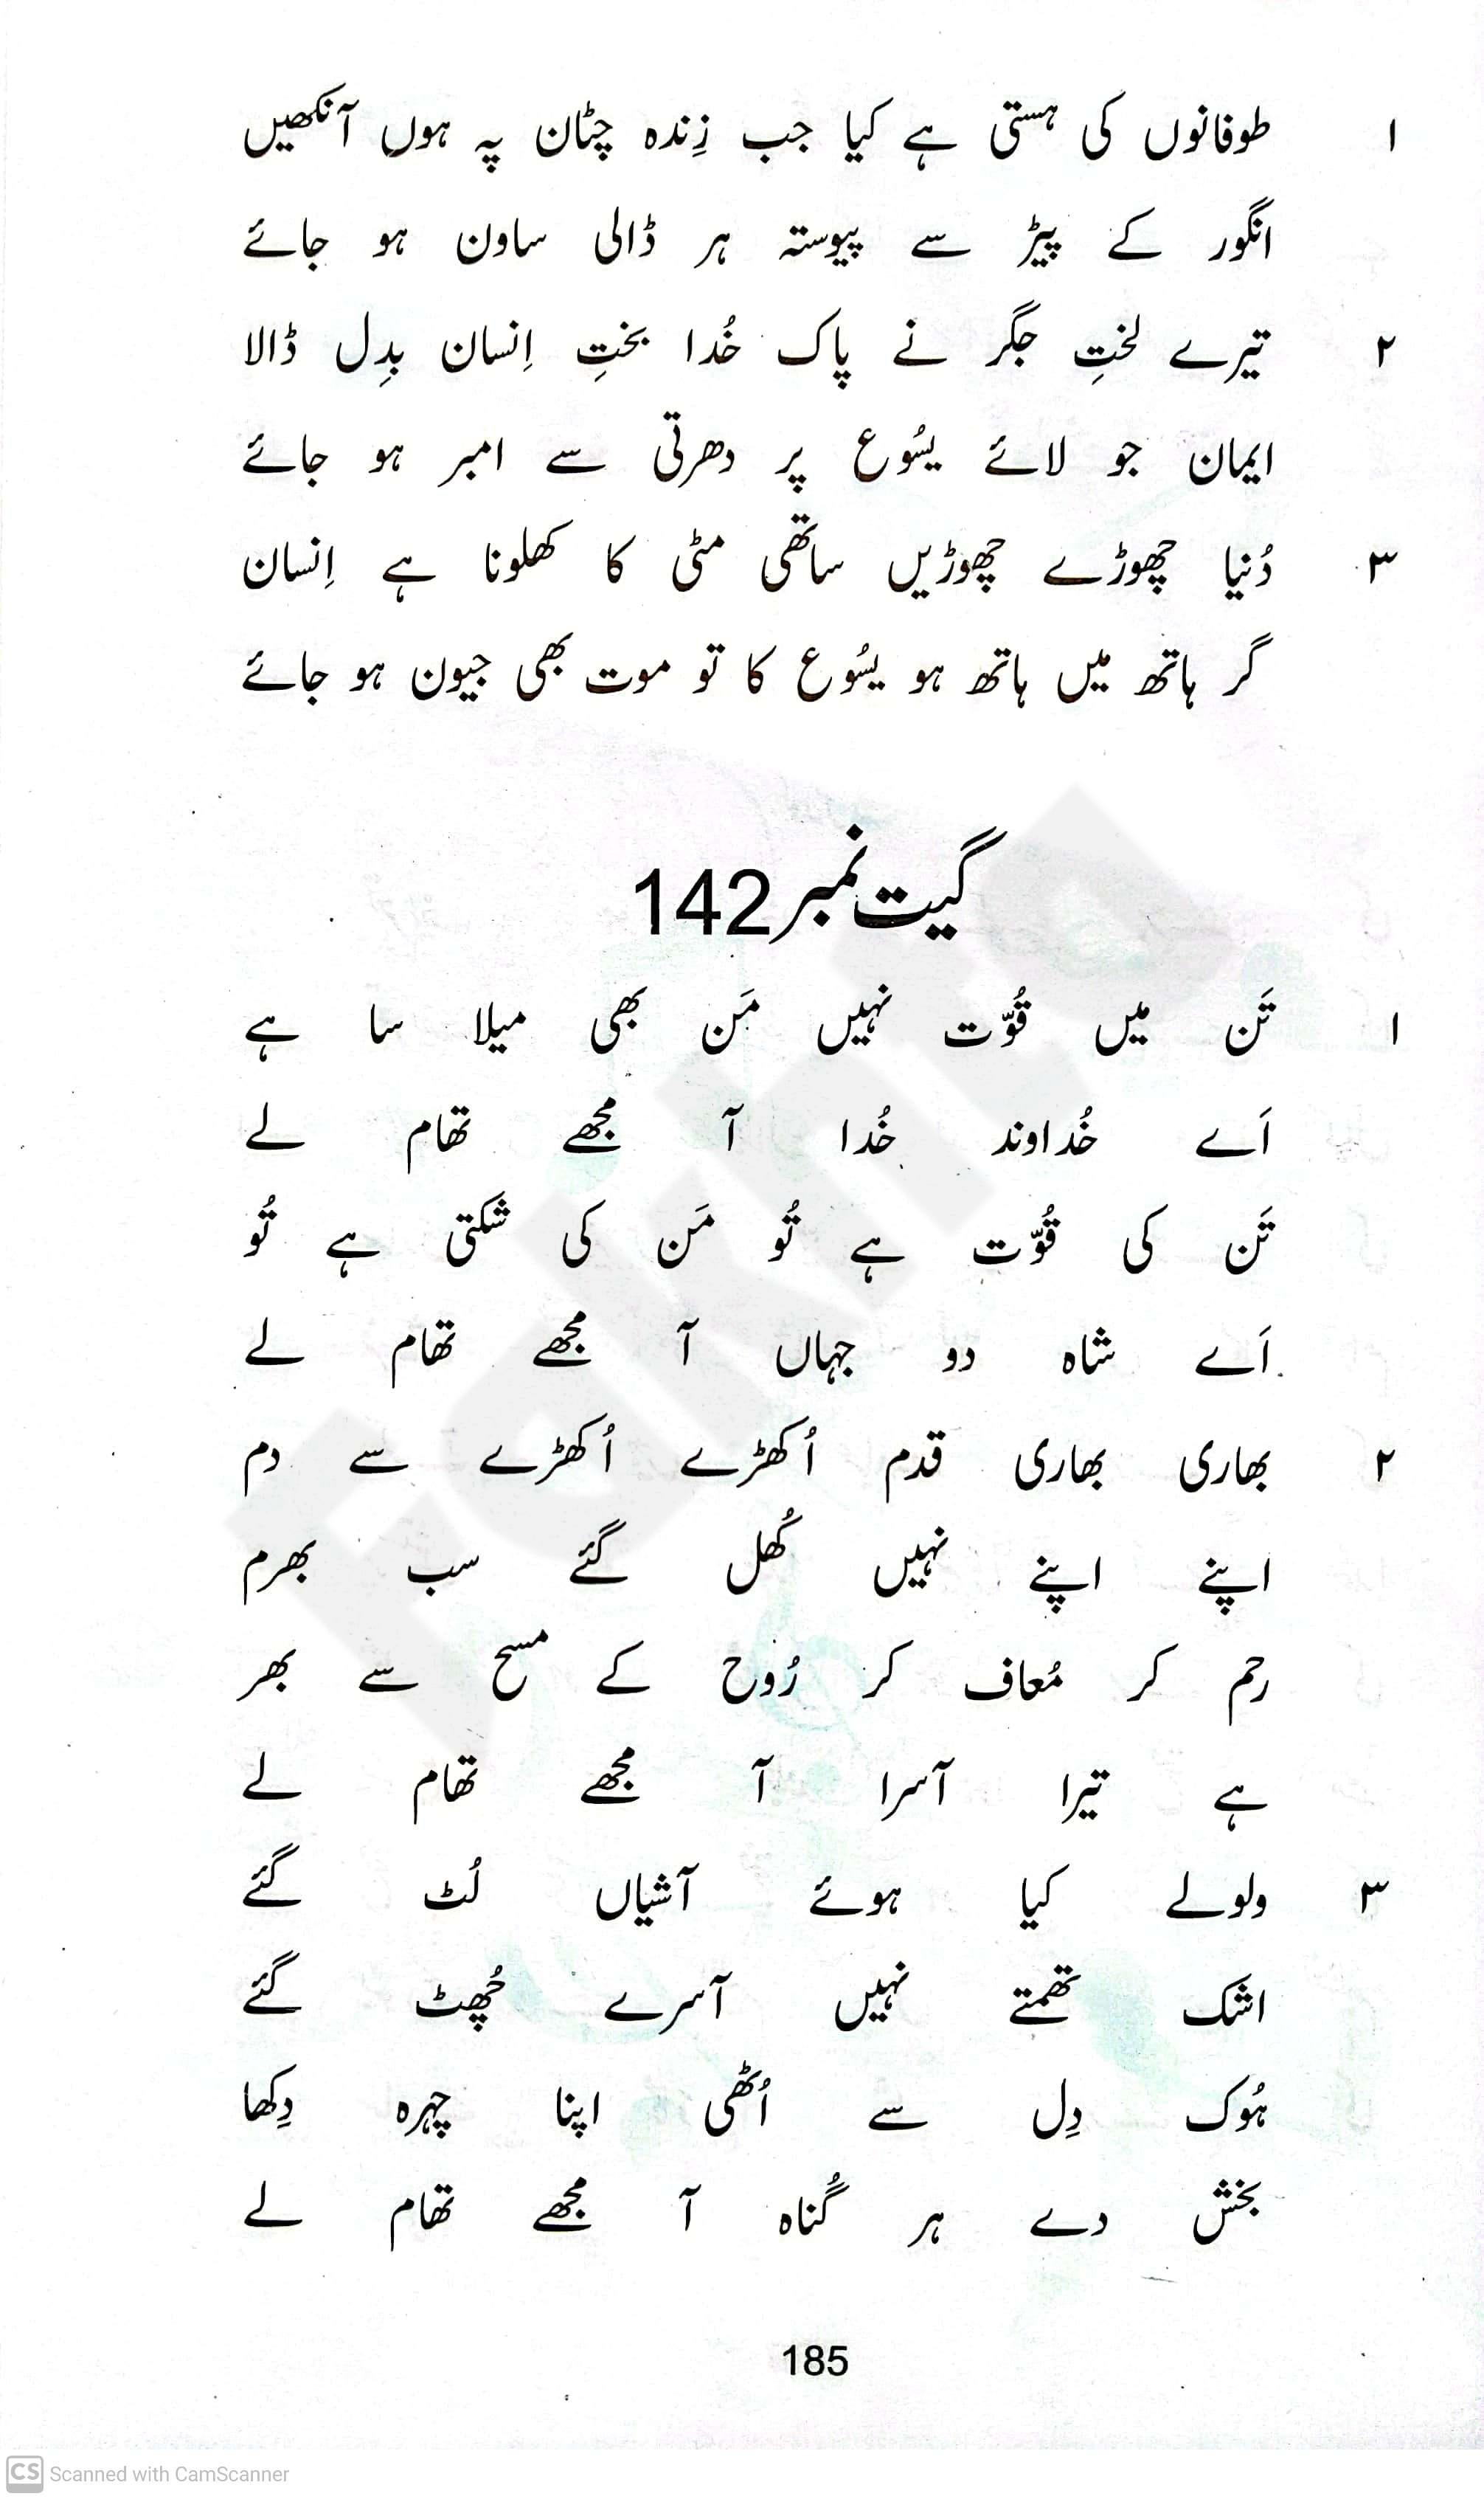 ۱ طوفانوں کی ہستی ہے کیا جب زِندہ چٹان پہ ہوں آنکھیں
انگور کے پیڑ سے پیوستہ ہر ڈالی ساون ہو جائے
۲ تیرے لختِ جگر نے پاک خُدا بختِ اِنسان بدِل ڈالا
ایمان جو لائے یسُوع پر دھرتی سے امبر ہو جائے
۳ دُنیا چھوڑے چھوڑیں ساتھی مٹی کا کھلونا ہے اِنسان
گر ہاتھ میں ہاتھ ہو یسُوع کا تو موت بھی جیون ہو جائے
گیت نمبر 142
۱ تَن میں قُوّت نہیں مَن بھی میلا سا ہے
اَے خُداوند خُدا آ مجھے تھام لے
تَن کی قُوّت ہے تُو مَن کی شکتی ہے تُو
اَے شاہ دو جہاں آ مجھے تھام لے
۲ بھاری بھاری قدم اُکھڑے اُکھڑے سے دم
اپنے اپنے نہیں کُھل گئے سب بھرم
رحم کر مُعاف کر رُوح کے مسح سے بھر
ہے تیرا آسرا آ مجھے تھام لے
۳ ولولے کیا ہوئے آشیاں لُٹ گئے
اشک تھمتے نہیں آسرے چُھٹ گئے
ہُوک دِل سے اُٹھی اپنا چہرہ دِکھا
بخش دے ہر گُناہ آ مجھے تھام لے
185
Fakhta
CS Scanned with CamScanner